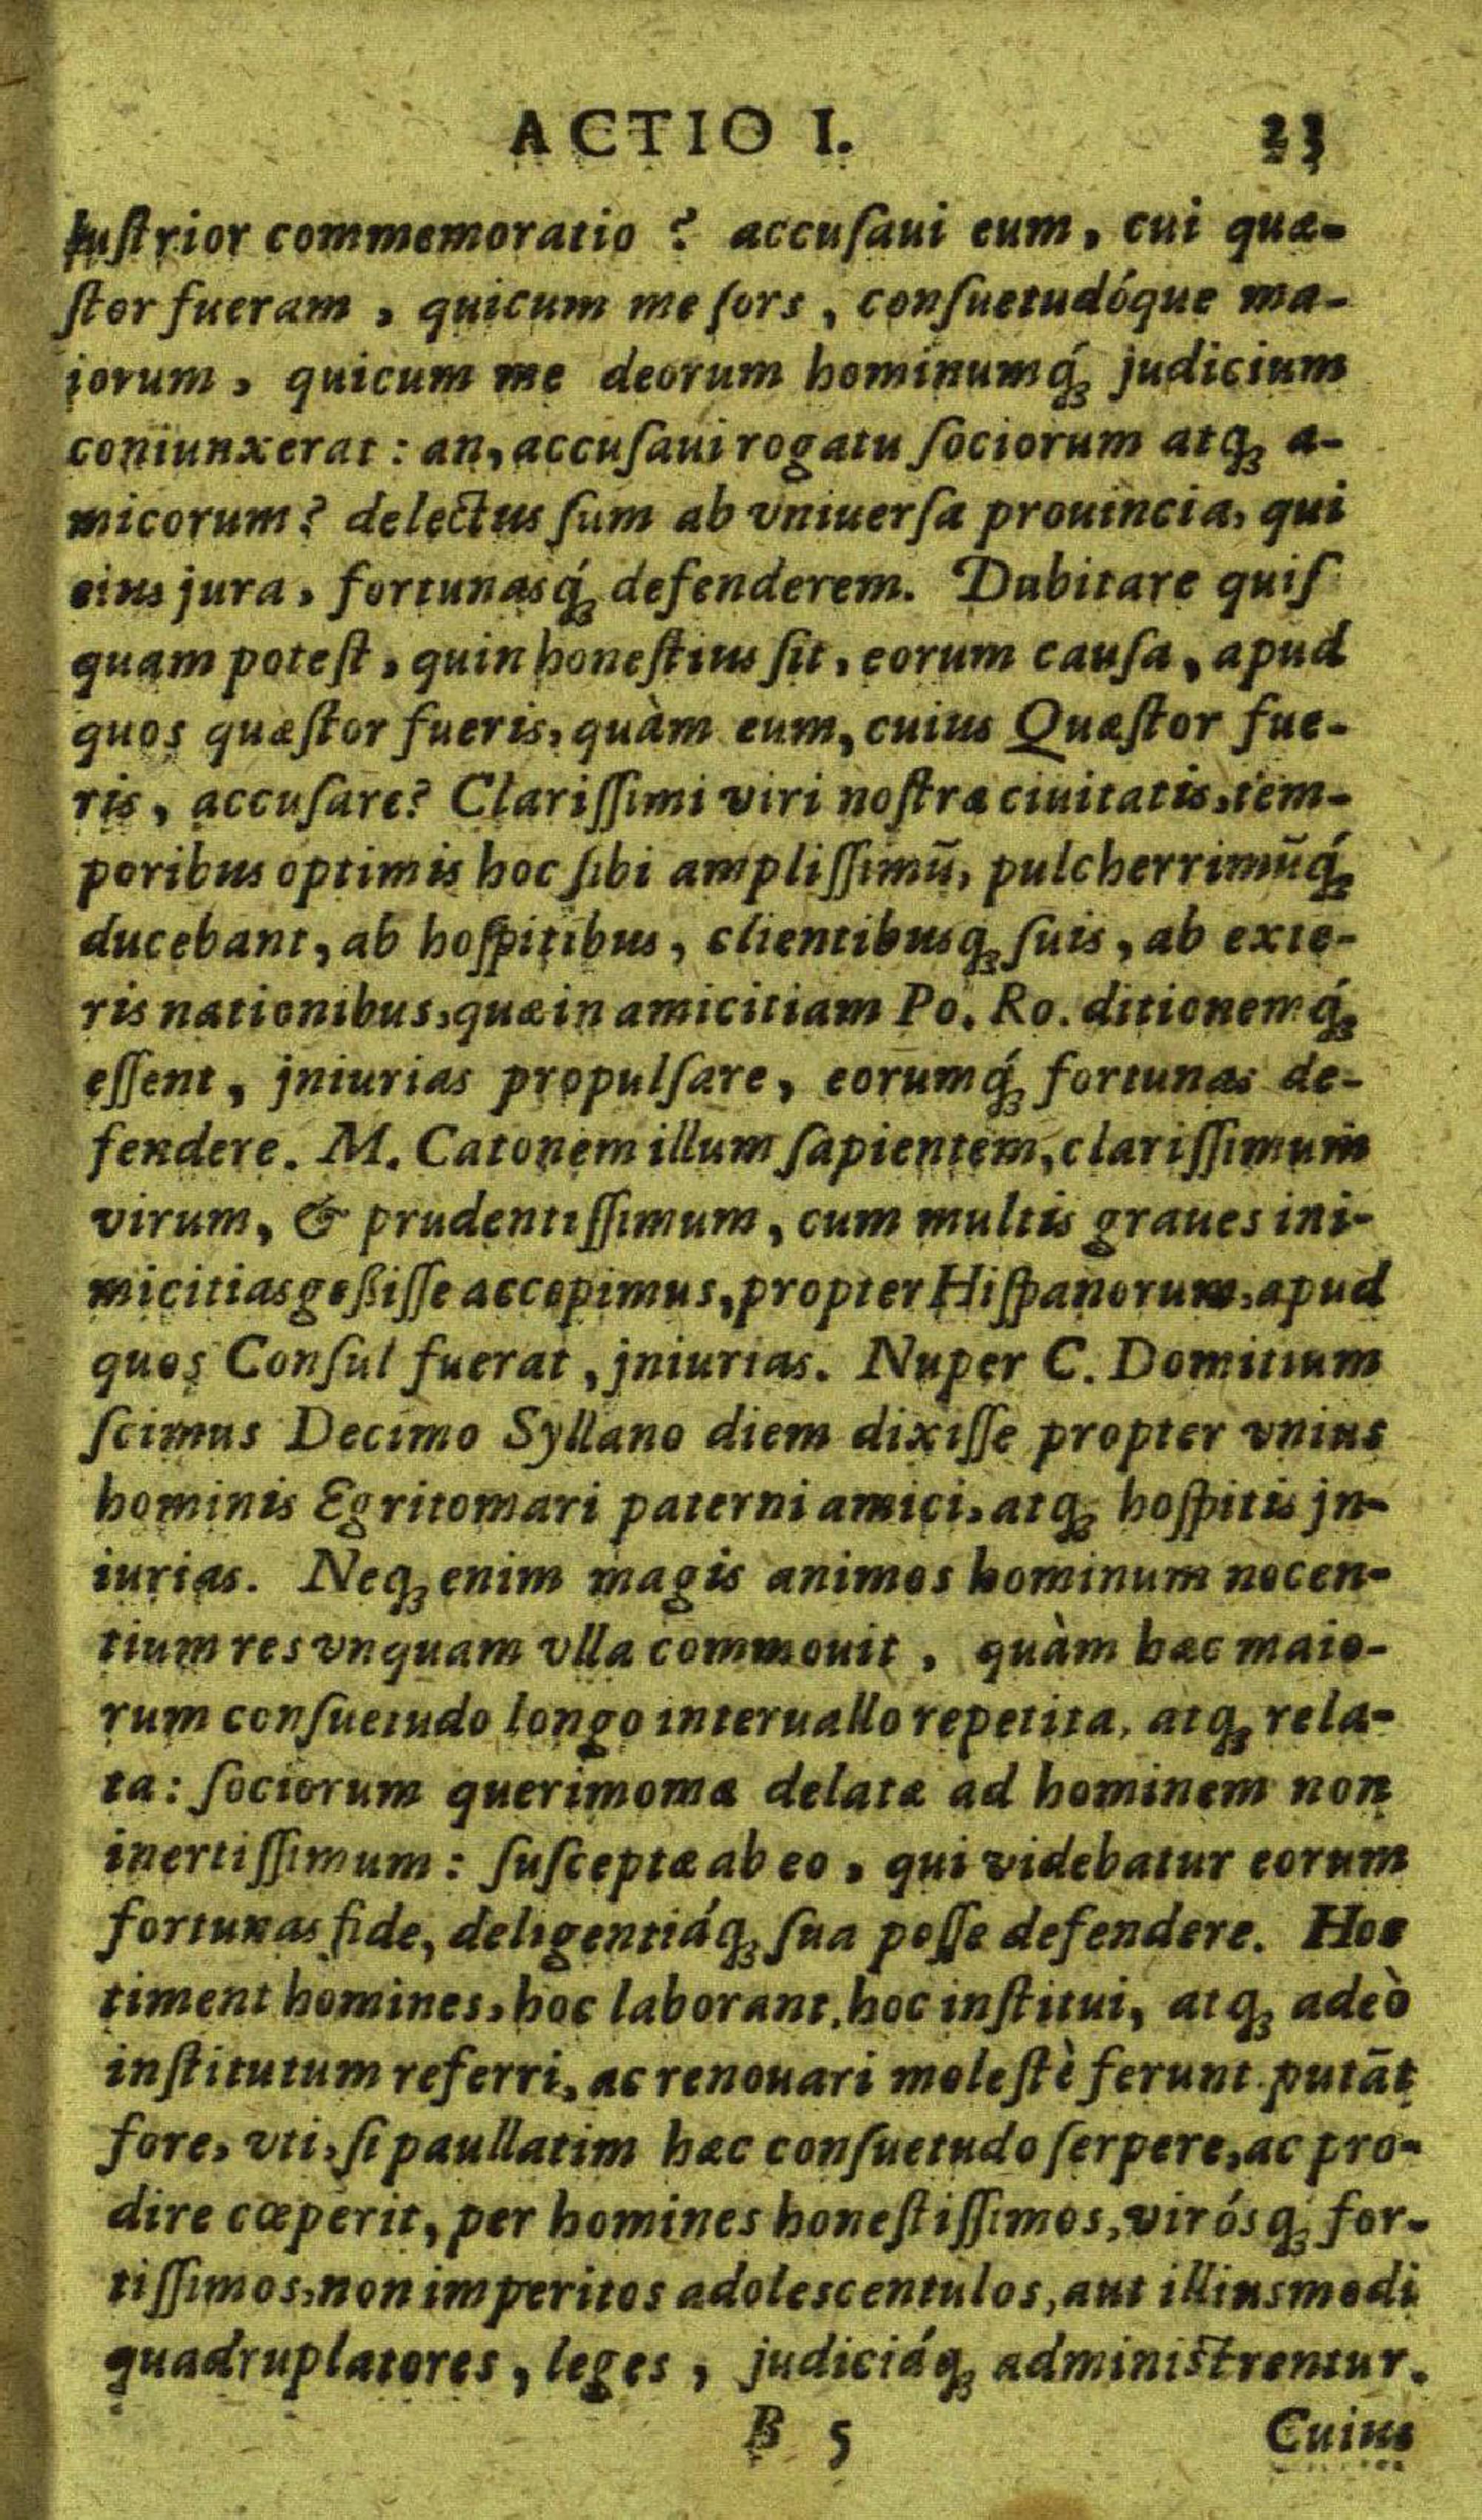 ACTIO I. 23
luſtrior commemoratio ? accuſaui eum, cui quæ-
ſtor fueram, quicum me ſors, conſuetudóque ma-
iorum, quicum me deorum hominumq́; judicium
coniunxerat: an, accuſaui rogatu ſociorum atq; a-
micorum? delectus ſum ab vniuerſa prouincia, qui
eius jura, fortunasq́; defenderem. Dubitare quiſ
quam poteſt, quin honeſtius ſit, eorum cauſa, apud
quos quæſtor fueris, quàm eum, cuius Quæſtor fue-
ris, accuſare? Clariſſimi viri noſtræ ciuitatis, tem-
poribus optimis hoc ſibi ampliſſimū, pulcherrimūq́;
ducebant, ab hoſpitibus, clientibusq; ſuis, ab exte-
ris nationibus, quæ in amicitiam Po. Ro. ditionemq́;
eſſent, jniurias propulſare, eorumq́; fortunas de-
fendere. M. Catonem illum ſapientem, clariſſimum
virum, & prudentiſſimum, cum multis graues ini-
micitias geßiſſe accepimus, propter Hiſpanorum, apud
quos Conſul fuerat, jniurias. Nuper C. Domitium
ſcimus Decimo Syllano diem dixiſſe propter vnius
hominis Egritomari paterni amici, atq; hoſpitis jn-
iurias. Neq; enim magis animos hominum nocen-
tium res vnquam vlla commouit, quàm hæc maio-
rum conſuetudo longo interuallo repetita, atq; rela-
ta: ſociorum querimoniæ delatæ ad hominem non
inertiſſimum: ſuſceptæ ab eo, qui videbatur eorum
fortunas fide, deligentiáq; ſua poſſe defendere. Hoc
timent homines, hoc laborant, hoc inſtitui, atq; adeò
inſtitutum referri, ac renouari moleſtè ferunt. putāt
fore, vti, ſi paullatim hæc conſuetudo ſerpere, ac pro-
dire cœperit, per homines honeſtiſſimos, virósq́; for-
tiſſimos, non imperitos adolescentulos, aut illiusmodi
quadruplatores, leges, judiciáq; adminiſtrentur.
B 5 Cuius